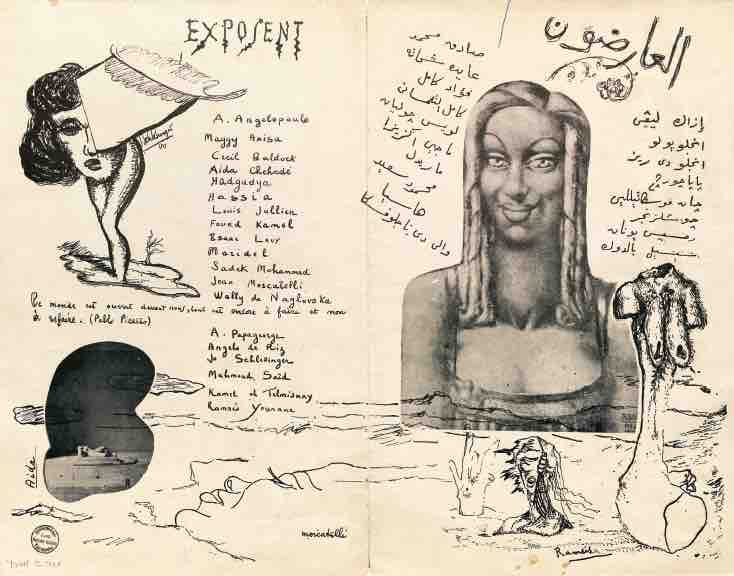 EXPOSENT
A. Angelopoulo
Maggy Anisa
Cecil Baldock
Aida Chehadé
Hadgudya
Hassia
Louis Jullien
Fouad Kamel
Isaac Levy
Maridel
Sadek Mohammed
Jean Moscatelli
Wally de Nagloveka
Le monde est ouvert devant nous, tout est encore à faire et non
à refaire. (Pablo Picasso)
A. Papageorge
Angelo de Riz
Jo Schlesinger
Mahmoud Saïd
Kamel el Telmisany
Ramsès Younane
Aida
moscatelli
العارضون
صادق محمد
عايده شحاته
فؤاد كامل
كامل التلمساني
لويس جوليان
ماجي اكزنفا
ماريدل
محمود سعيد
هاسيا
والى دى ناجلوفسكا
إزاك ليڤى
انجلوبولو
انجلو دى ريز
باباجورج
چان موسكاتيللي
چو شلزنجر
رمسيس يونان
سيسيل بالدوك
Ramsès